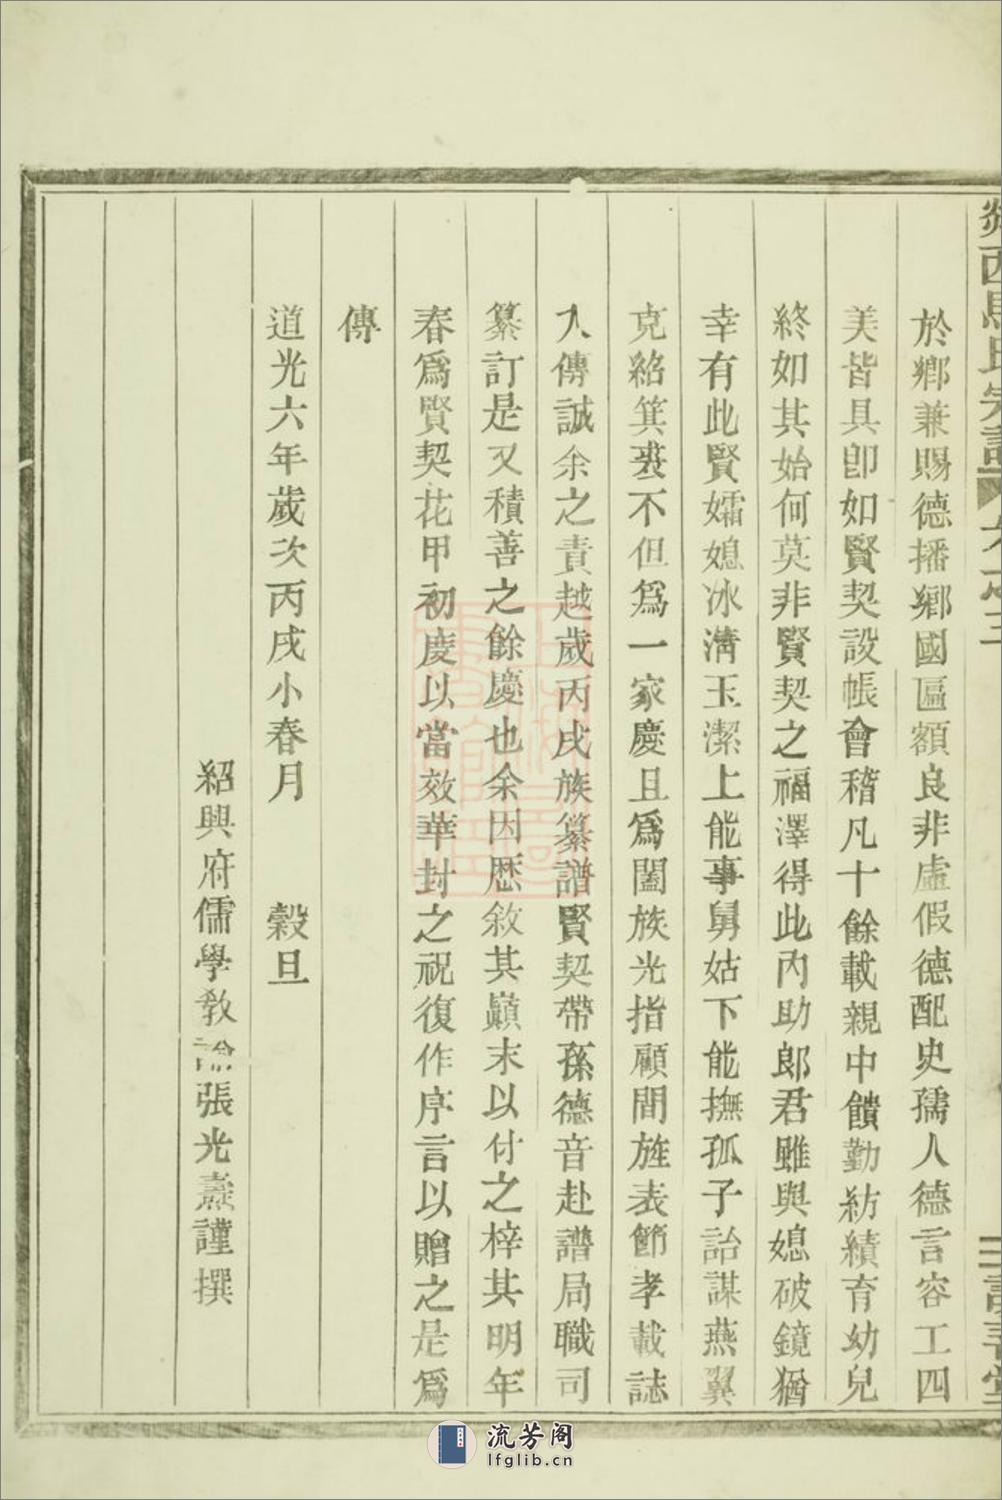 於鄉兼賜德播鄉國匾額良非虛假德配史孺人德言容工四
美皆具卽如賢契設帳會稽凡十餘載親中饋勤紡績育幼兒
終如其始何莫非賢契之福澤得此內助郎君雖與媳破鏡猶
幸有此賢孀媳冰淸玉潔上能事舅姑下能撫孤子詒謀燕翼
克紹箕裘不但爲一家慶且爲闔族光指顧間旌表節孝載誌
入傳誠余之責越歲丙戌族纂譜賢契帶孫德音赴譜局職司
纂訂是又積善之餘慶也余因歷敘其巔末以付之梓其明年
春爲賢契花甲初慶以當效華封之祝復作序言以贈之是爲
傳
道光六年歲次丙戌小春月 穀旦
紹興府儒學敎諭張光燾謹撰
流芳阁
lfglib.cn